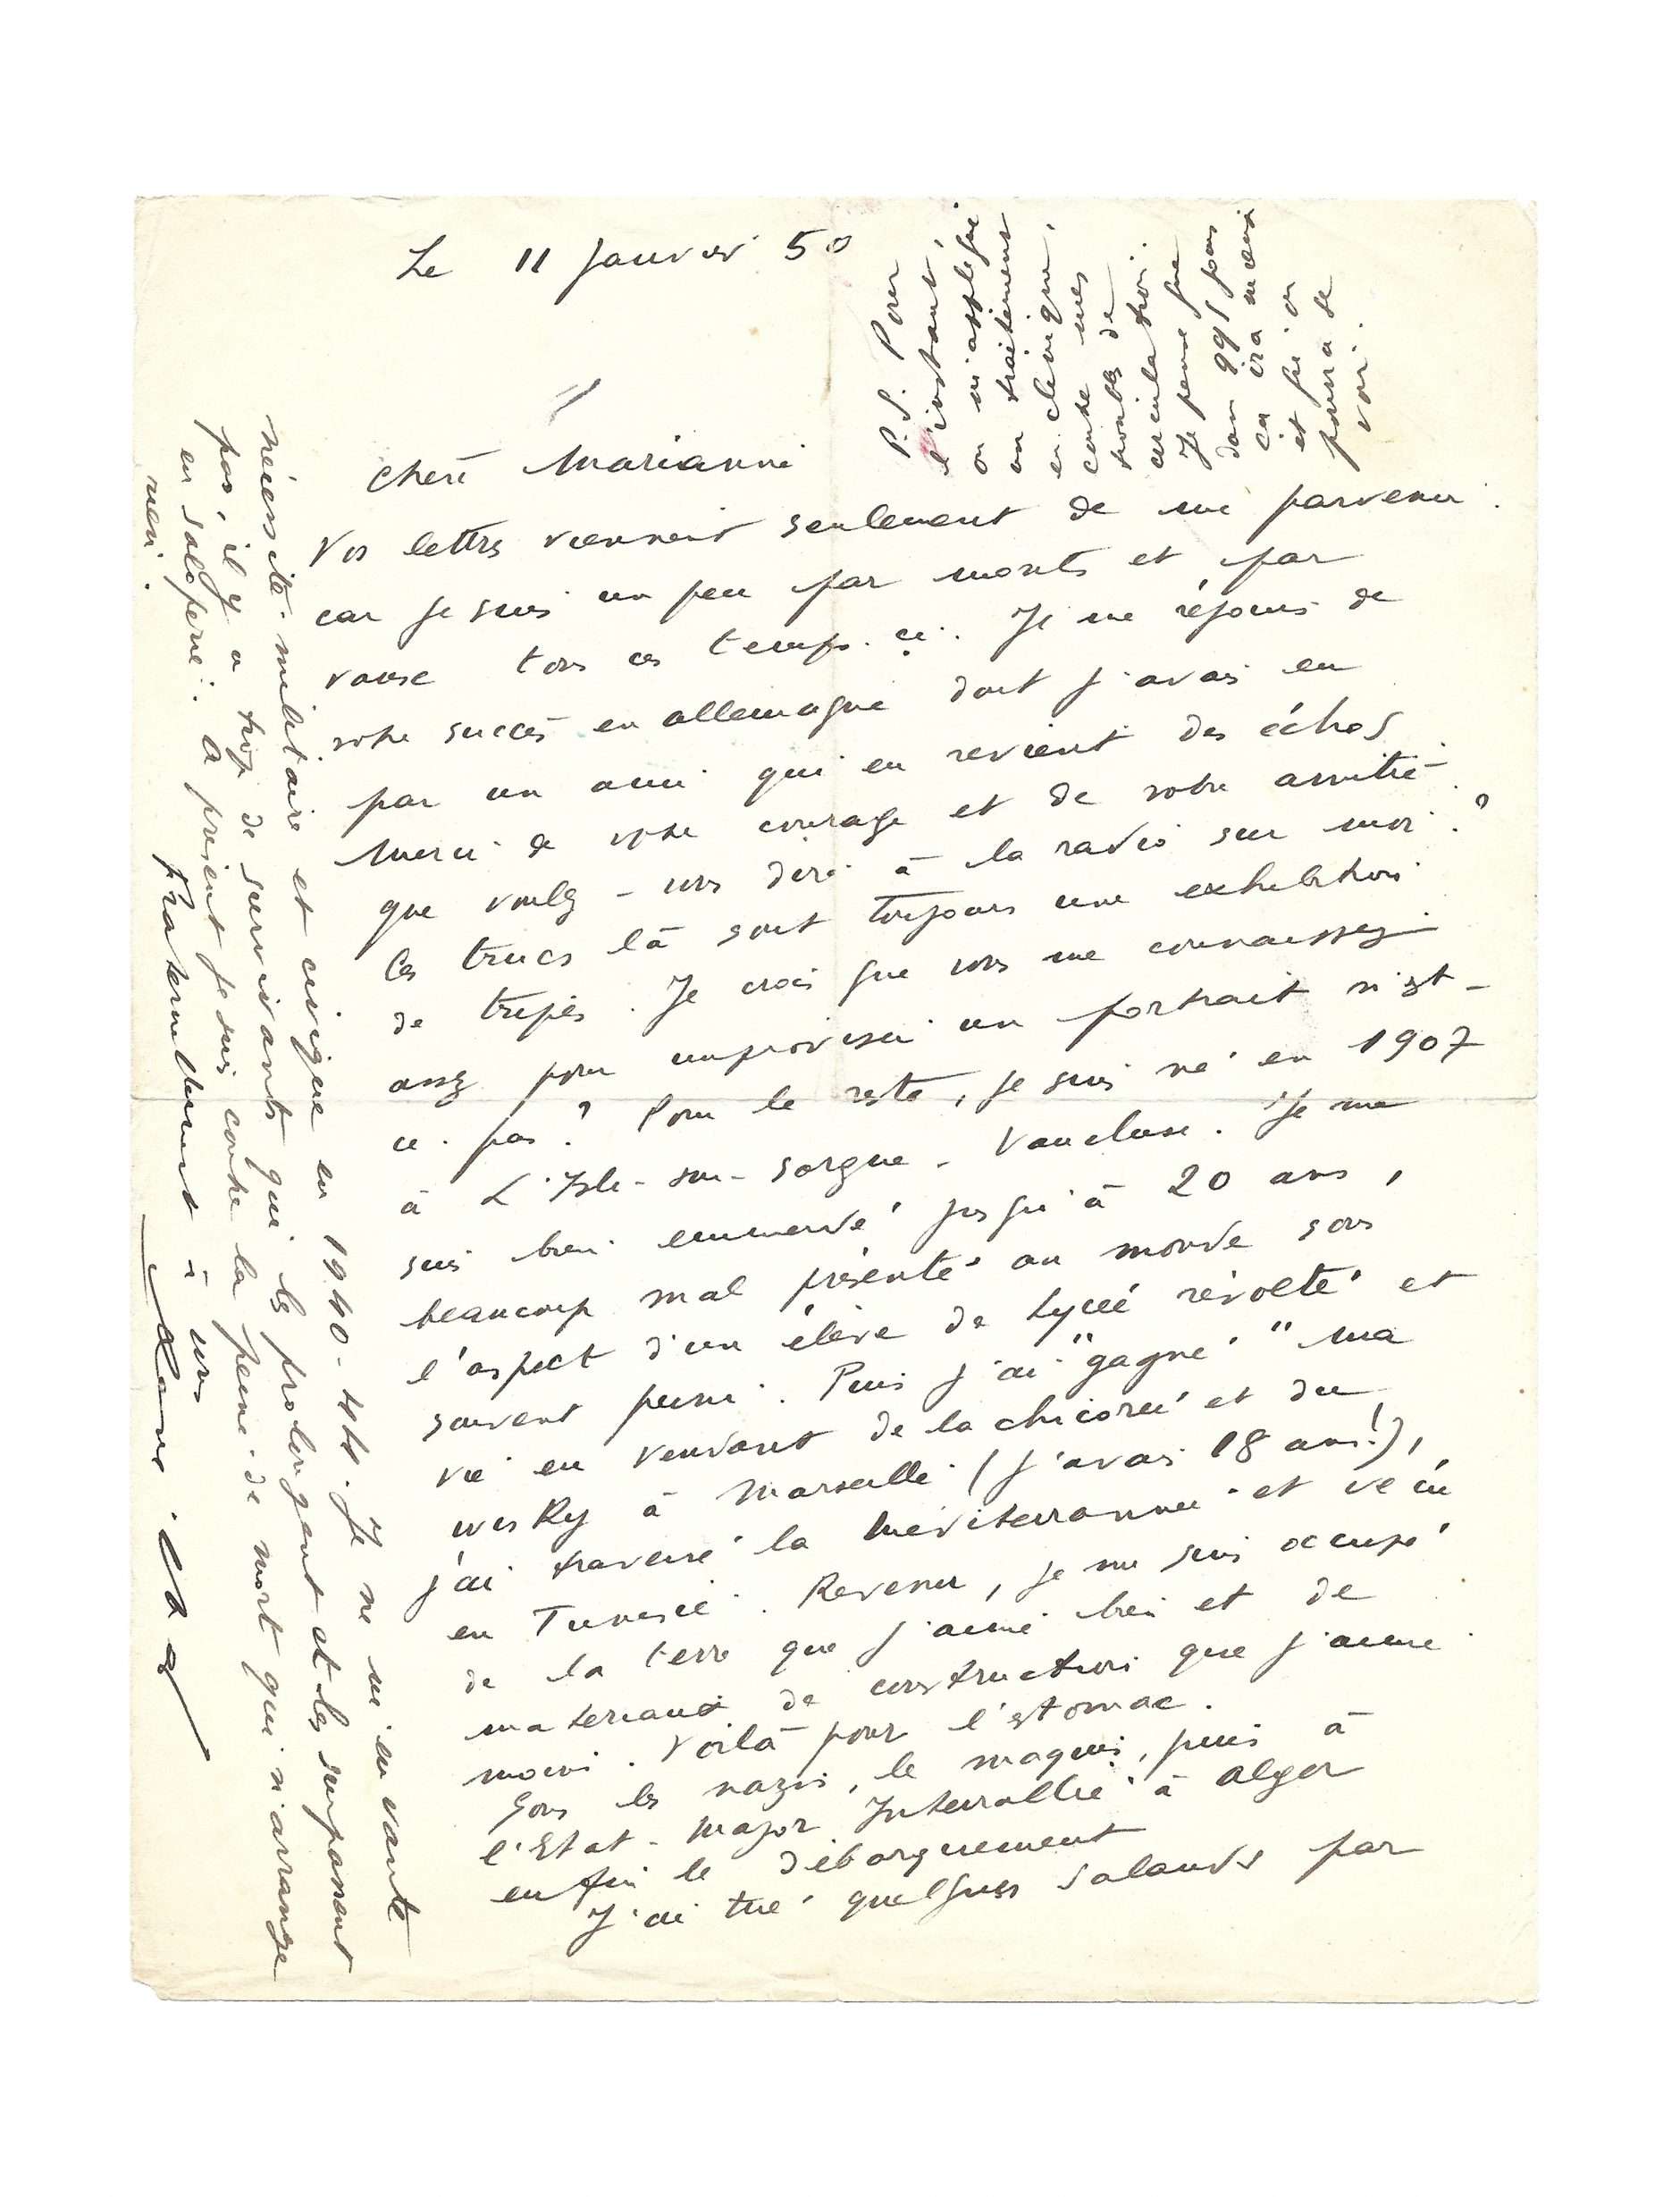 Le 11 Janvier 50
Chère Marianne
Vos lettres viennent seulement de me parvenir
car je suis un peu par monts et par
vause tous ces temps-ci. Je me réjouis de
votre succès en allemagne dont j'avais eu
par un ami qui en revient des échos
Merci de votre courage et de votre amitié.
que voulez-vous dire à la radio sur moi ?
Ces trucs là sont toujours une exhibition
de tripes. Je crois que vous me connaissez
assez pour improviser un portrait n'est-
ce-pas ? Pour le reste, je suis né en 1907
à L'Isle-sur-Sorgue - Vaucluse. Je me
suis bien emmerdé jusqu'à 20 ans,
beaucoup mal présenté au monde sous
l'aspect d'un élève de Lycée révolté et
souvent puni. Puis j'ai "gagné" ma
vie en vendant de la chicorée et du
wisky à Marseille (j'avais 18 ans!),
j'ai traversé la méditerrannée et vécu
en Tunisie. Revenu, je me suis occupé
de la terre que j'aime bien et de
materiaux de construction que j'aime
moins. Voilà pour l'estomac.
Sous les nazis, le maquis, puis à
l'Etat-Major Interallié à Alger
enfin le débarquement
J'ai tué quelques salauds par
nécessité militaire et civique en 1940-44. Je ne m'en vante
pas, il y a trop de survivants qui les prolongent et les surpassent
en saloperie. A présent je suis contre la peine de mort qui n'arrange
rien.
Fraternellement à vous
René Char
P.S. Pour
l'instant,
on m'applique
un traitement
en clinique,
contre mes
troubles de
circulation.
Je pense que
dans jours
ça ira mieux
et qu'on
pourra se
voir.